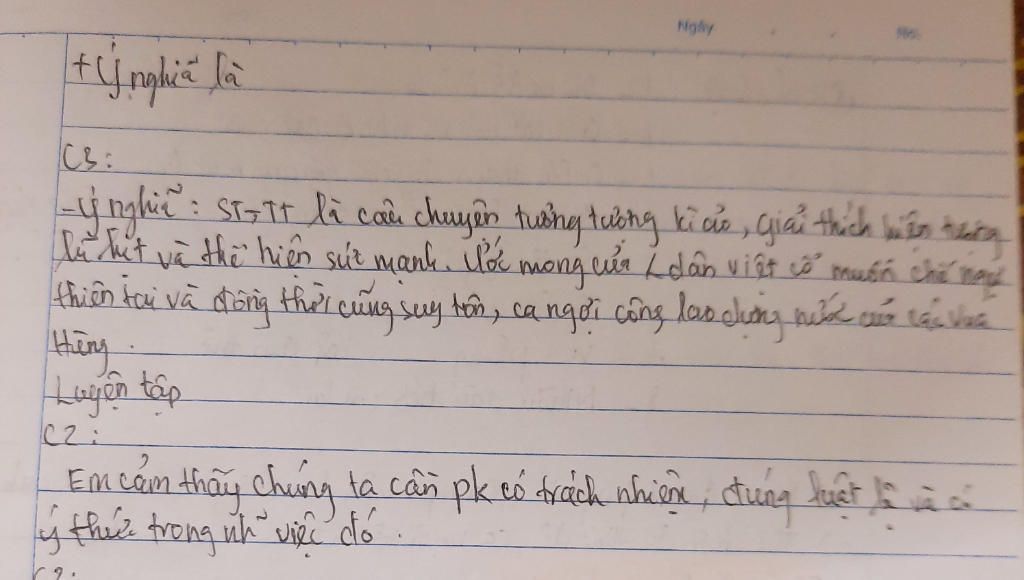 Ngày
+ Ý nghiã là
C3:
- Ý nghiã: ST, TT là câu chuyện tưởng tượng kì ảo, giải thích hiện tượng
lũ lụt và thể hiện sức mạnh. Ước mong của dân việt cổ muốn chế ngự
thiên tai và đồng thời cũng suy tôn, ca ngợi công lao dựng nước của các vua
Hùng.
Luyện tập
C2:
Em cảm thấy chúng ta cần pk có trách nhiện, đúng luật lệ và có
ý thức trong nh~ việc đó.